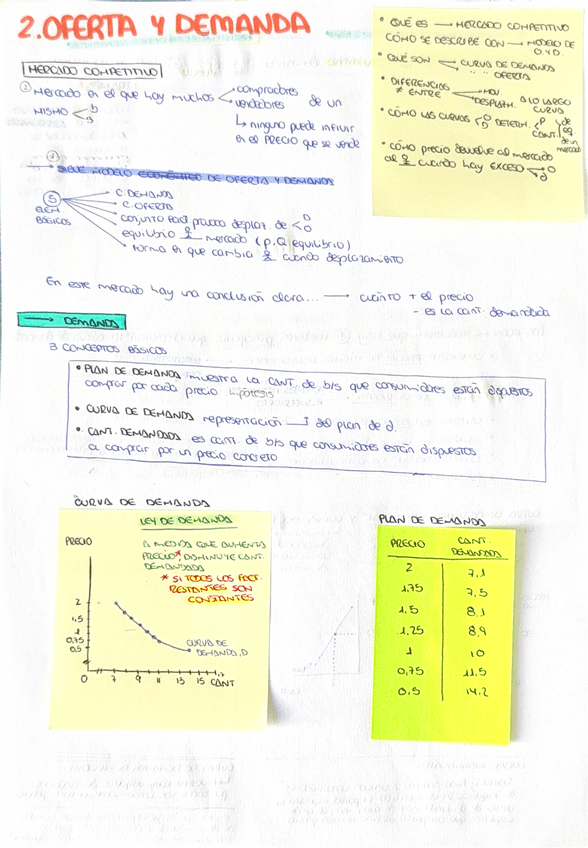 2. OFERTA Y DEMANDA
• QUÉ ES → MERCADO COMPETITIVO
CÓMO SE DESCRIBE CON → MODELO DE O.Y D
• QUÉ SON CURVA DE DEMANDA
" " OFERTA
• DIFERENCIAS ≠ ENTRE MOV. A LO LARGO
DESPLAZM. CURVA
• CÓMO LAS CURVAS O D DETERM. P CANT. de eq. de un mercado
• CÓMO precio devuelve al mercado
al cuando hay EXCESO O
d
MERCADO COMPETITIVO
② Mercado en el que hay muchos compradores
vendedores de un
MISMO b
s
↳ ninguno puede influir
en el PRECIO que se vende
① → SIGUE MODELO DE OFERTA Y DEMANDA
⑤ ELEM BÁSICOS
C. DEMANDA
C. OFERTA
conjunto fact. desplaz de O
D
equilibrio mercado (P, Q equilibrio)
forma en que cambia cuando desplazamiento
En este mercado hay una conclusión clara... → cuanto + el precio
- es la cant. demandada
→ DEMANDA
3 CONCEPTOS BÁSICOS
• PLAN DE DEMANDA: muestra la CANT. de b/s que consumidores están dispuestos
comprar por cada precio hipótesis
• CURVA DE DEMANDA representación del plan de d.
• CANT. DEMANDADA es cant. de b/s que consumidores están dispuestos
a comprar por un precio concreto
CURVA DE DEMANDA
LEY DE DEMANDA
A MEDIDA QUE AUMENTA
PRECIO*, DISMINUYE CANT.
DEMANDADA
* SI TODOS LOS FACT.
RESTANTES SON
CONSTANTES
PRECIO
2
1,5
1
0,75
0,5
CURVA DE
DEMANDA, D
0 7 9 11 13 15 17 CANT
PLAN DE DEMANDA
PRECIO CANT. DEMANDADA
2 7,1
1,75 7,5
1.5 8,1
1.25 8,9
1 10
0,75 11.5
0.5 14.2